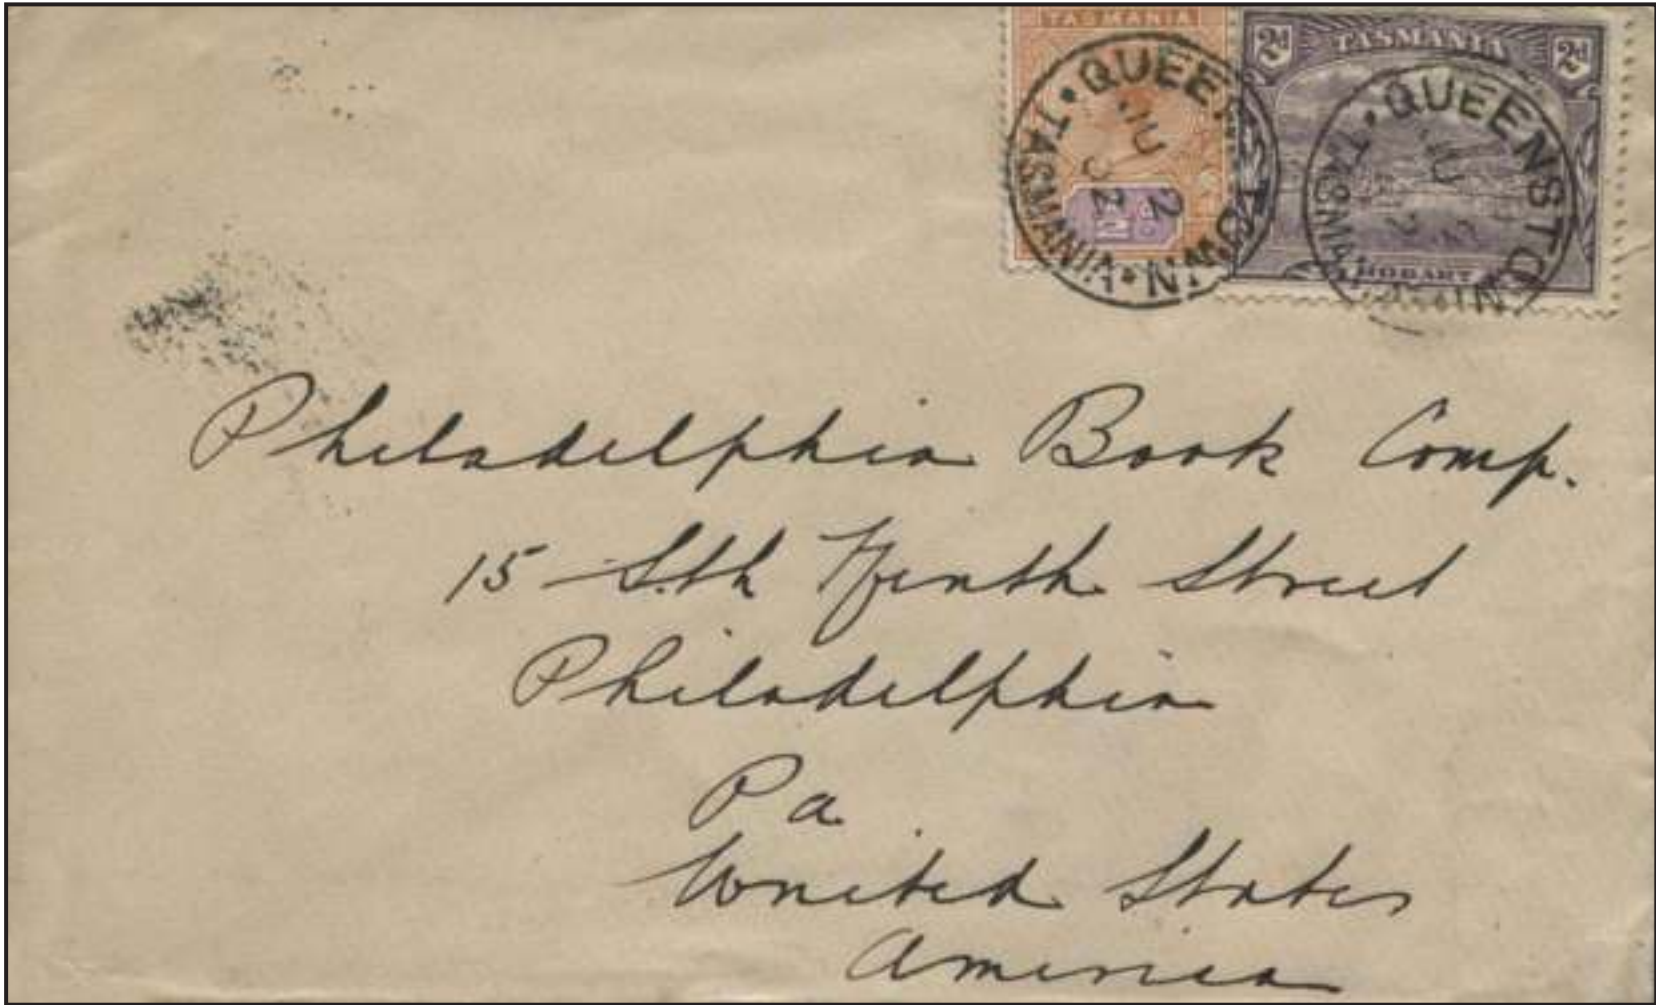 TASMANIA
QUEENSTOWN
TASMANIA
2d TASMANIA 2d
HOBART
QUEENSTOWN
TASMANIA
Philadelphia Book Comp.
15 Sth Street
Philadelphia
Pa
United States
America